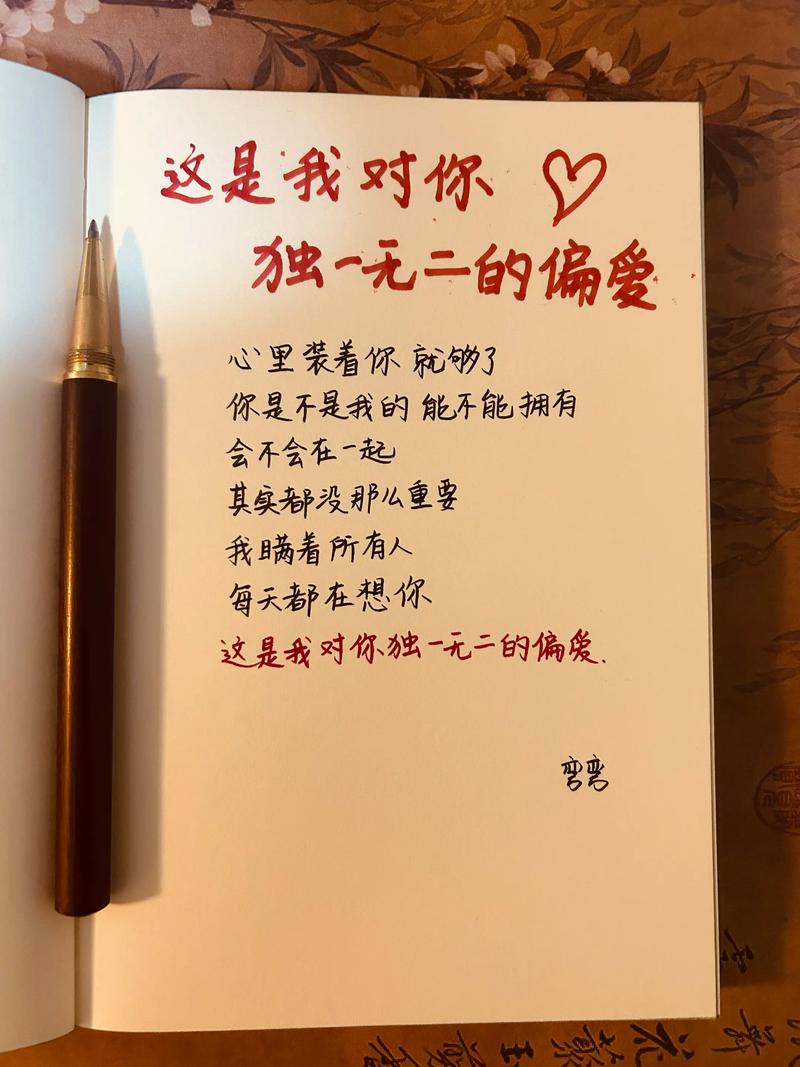 这是我对你
独一无二的偏爱
心里装着你 就够了
你是不是我的 能不能拥有
会不会在一起
其实都没那么重要
我瞒着所有人
每天都在想你
这是我对你独一无二的偏爱.
弯弯